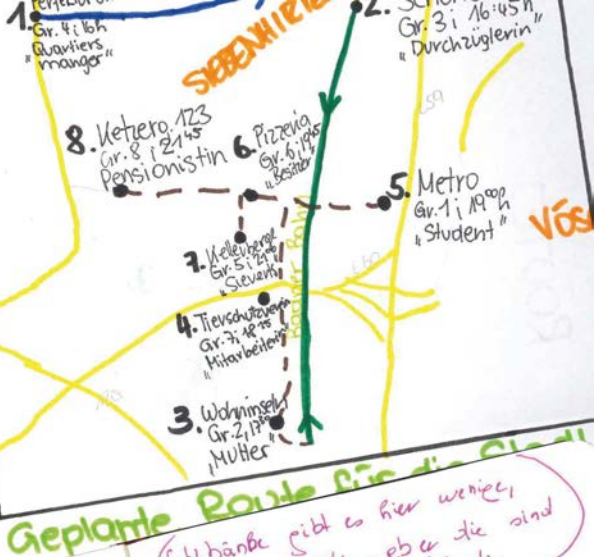 1.
Gr. 4; 16h
Quartiers
manager"
SIEBENHIRTE
2.
Gr. 3; 16:45h
"Durchzüglerin"
8. Ketzerg. 123
Gr. 8; 21⁴⁵
Pensionistin
6. Pizzeria
Gr. 6, 19⁴⁵
"Besitzer"
5. Metro
Gr. 1; 19⁰⁰h
"Student"
VÖS
7. Kellerberg
Gr. 5;
"Sievert"
Badner Bahn
4. Tierschutzverein
Gr. 7; 18¹⁵
"Mitarbeiterin"
3. Wohninseln
Gr. 2,
"Mutter"
Geplante Route für die Stadt
gibt es hier wenige,
aber die sind